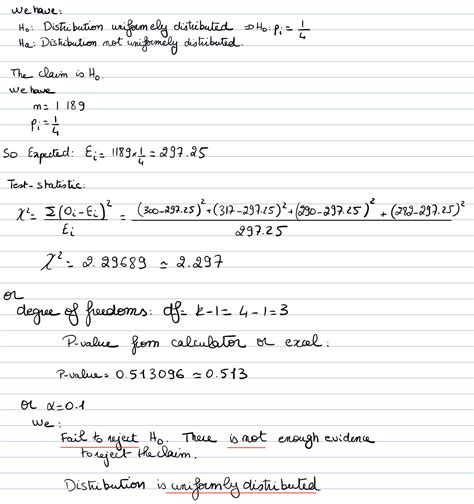 We have:
H₀: Distribution uniformely distributed ⇒ H₀: pᵢ = 1/4
Ha: Distribution not uniformely distributed.
The claim is H₀.
We have
n = 1 189
pᵢ = 1/4
So Expected: Eᵢ = 1189 × 1/4 = 297.25
Test-statistic:
χ² = Σ(Oᵢ-Eᵢ)²/Eᵢ = ((300-297.25)² + (317-297.25)² + (290-297.25)² + (282-297.25)²)/297.25
χ² = 2.29689 ≃ 2.297
or
degree of freedoms: df = k-1 = 4-1 = 3
P-value from calculator or excel:
P-value = 0.513096 ≃ 0.513
or α = 0.1
We:
Fail to reject H₀. There is not enough evidence
to reject the claim.
Distribution is uniformly distributed